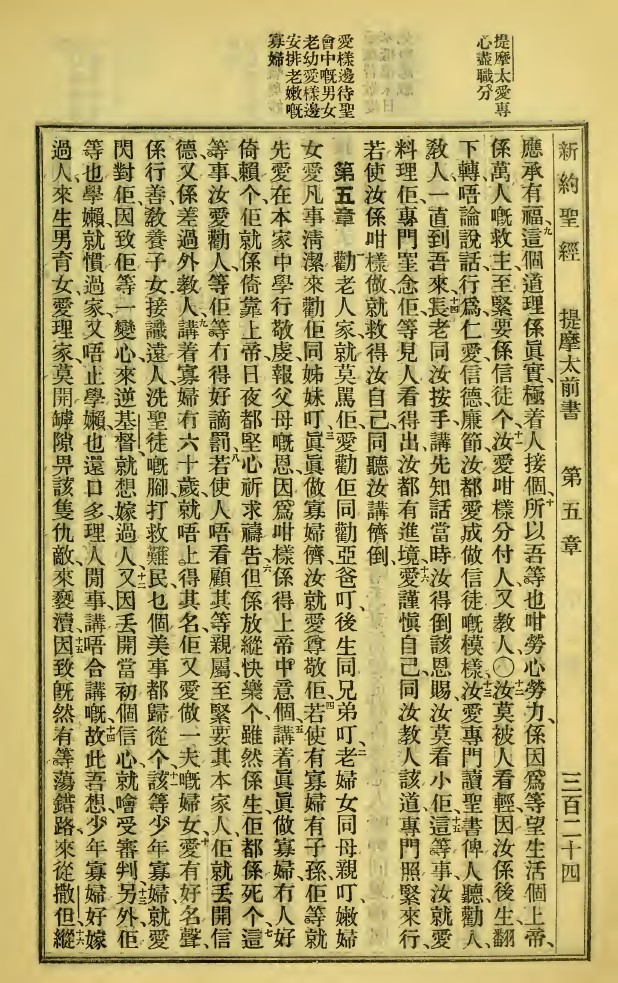 提摩太愛專
心盡職分
愛樣邊待聖
會中嘅男女
老幼愛樣邊
安排老嫩嘅
寡婦
新約聖經 提摩太前書 第五章 三百二十四
應承有福、九這個道理係眞實、極着人接個、十所以吾等也咁勞心勞力、係因爲等望生活個上帝、
係萬人嘅救主、至緊要係信徒个、十一汝愛咁樣分付人、又教人〇十二汝莫被人看輕、因汝係後生、翻
下轉唔論說話、行爲、仁愛、信德、廉節、汝都愛成做信徒嘅模樣、十三汝愛專門讀聖書俾人聽、勸人、
教人、一直到吾來、十四長老同汝按手、講先知話當時、汝得倒該恩賜、汝莫看小佢、十五這等事汝就愛
料理佢、專門罜念佢等、見人看得出汝都有進境、十六愛謹愼自己、同汝教人該道、專門照緊來行、
若使汝係咁樣做、就救得汝自己、同聽汝講儕倒、
第五章 一勸老人家、就莫罵佢、愛勸佢同勸亞爸叮、後生同兄弟叮、二老婦女同母親叮、嫩婦
女愛凡事淸潔來勸佢同姊妹叮、三眞眞做寡婦儕、汝就愛尊敬佢、四若使有寡婦有子孫、佢等就
先愛在本家中學行敬虔、報父母嘅恩、因爲咁樣係得上帝中意個、五講着眞眞做寡婦冇人好
倚賴个、佢就係倚靠上帝、日夜都堅心祈求禱告、六但係放縱快樂个、雖然係生、佢都係死个、七這
等事汝愛勸人、等佢等冇得好謫罰、八若使人唔看顧其等親屬、至緊要其本家人、佢就丟開信
德、又係差過外教人、九講着寡婦、有六十歲、就唔上得其名、佢又愛做一夫嘅婦女、十愛有好名聲、
係行善、教養子女、接識遠人、洗聖徒嘅腳、打救難民、乜個美事都歸從个、十一該等少年寡婦、就愛
閃對佢、因致佢等一變心來逆基督、就想嫁過人、十二又因丟開當初個信心、就噲受審判、十三另外佢
等也學嬾、就慣過家、又唔止學嬾也、還口多理人閒事、講唔合講嘅、十四故此吾想少年寡婦、好嫁
過人、來生男育女、愛理家、莫開罅隙畀該隻仇敵、來褻瀆、十五因致旣然有等蕩錯路、來從撒但、十六縱